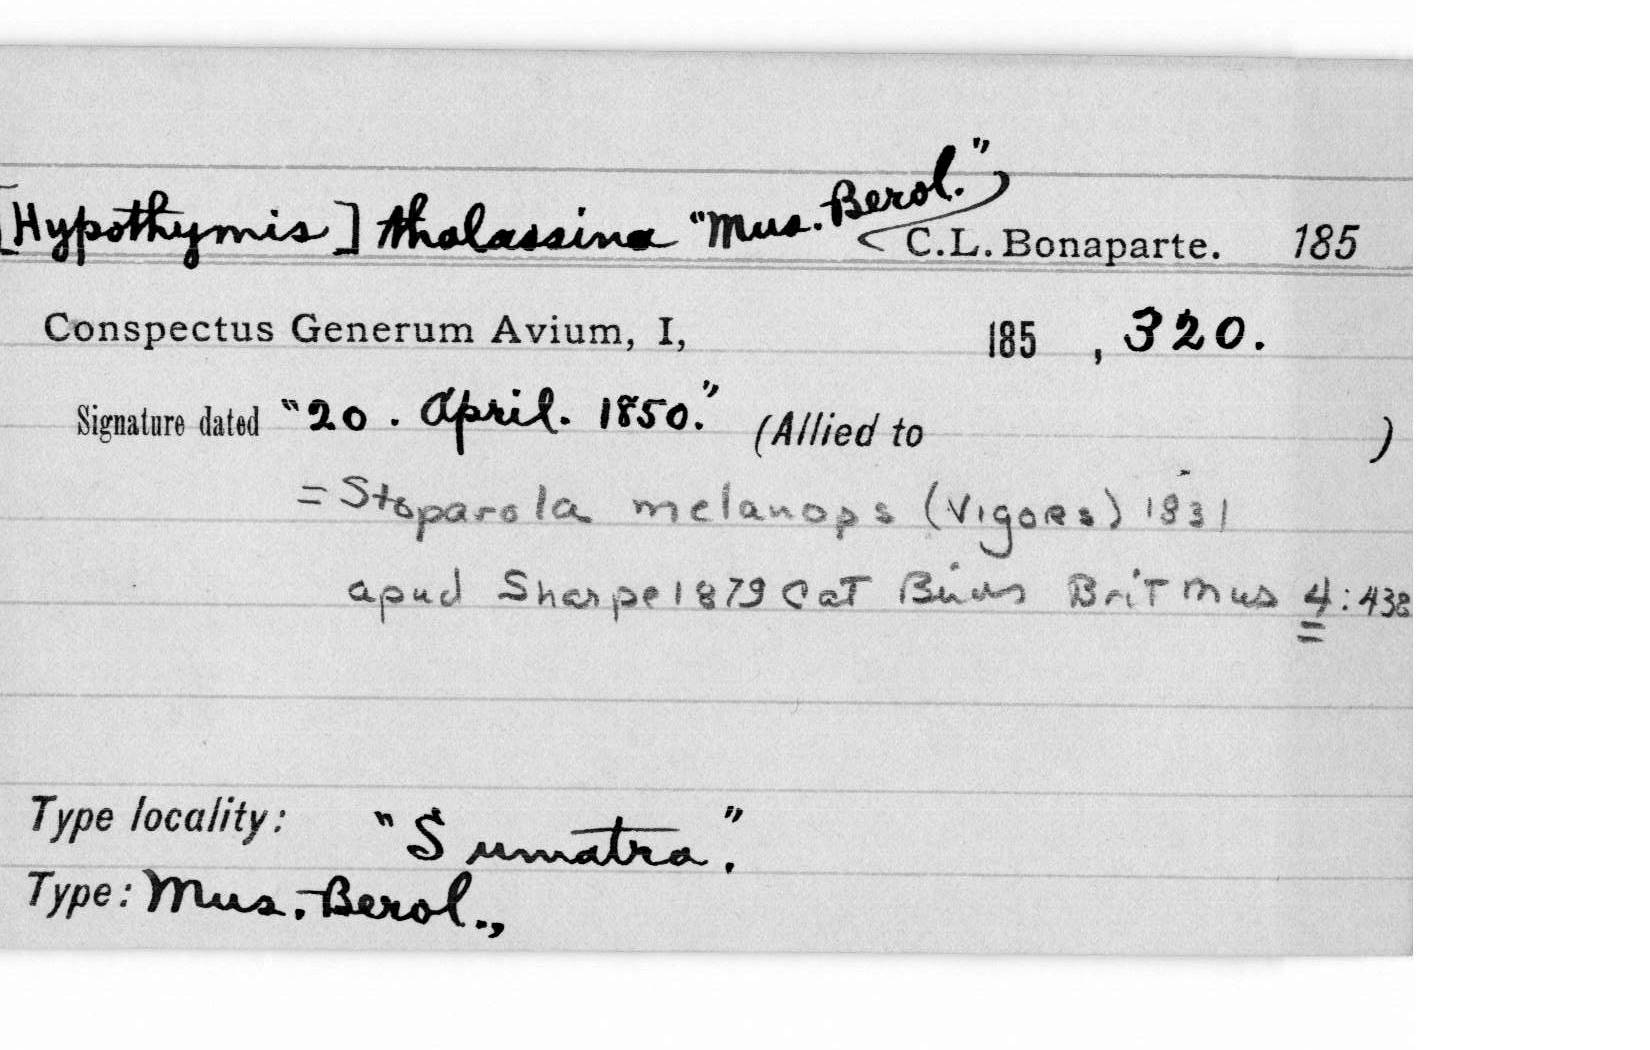 [Hypothymis] thalassina "Mus. Berol." C.L. Bonaparte. 185
Conspectus Generum Avium, I, 185 , 320.
Signature dated "20. April. 1850." (Allied to )
= Stoparola melanops (Vigors) 1831
apud Sharpe 1879 Cat Birds Brit Mus 4:438
Type locality: "Sumatra".
Type: Mus. Berol.,